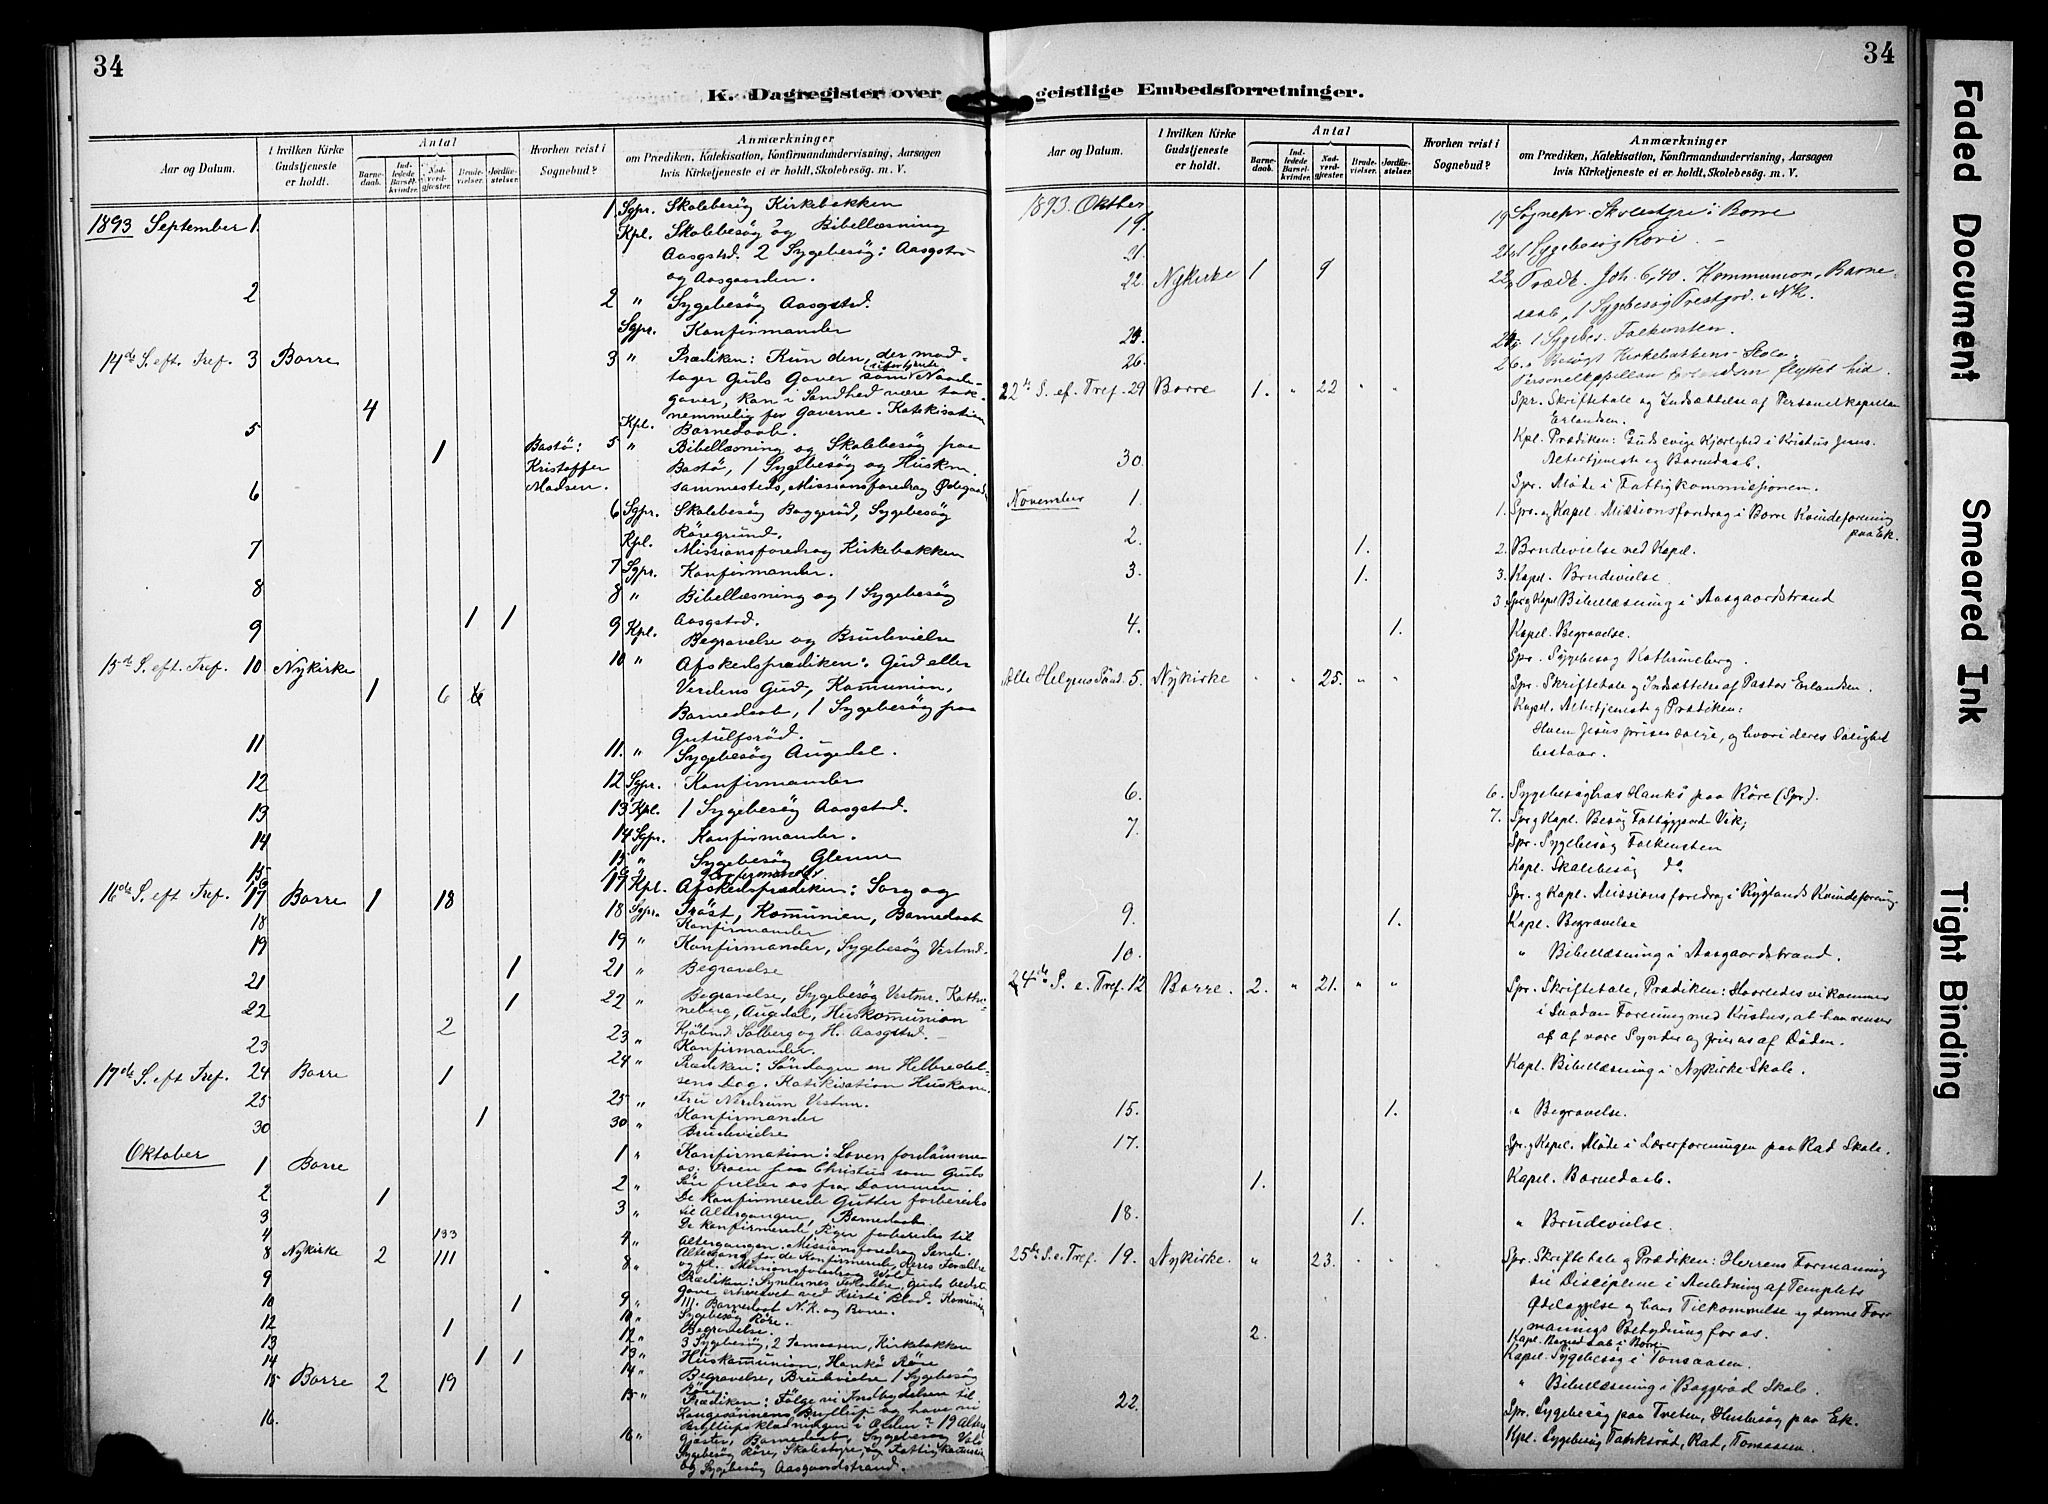 34
K. Dagregister over
Aar og Datum.
I hvilken Kirke Gudstjeneste er holdt.
Antal
Barnedaab.
Indledede Barselkvinder.
Nadverdgjæster.
Brudevielser.
Jordfæstelser.
Hvorhen reist i Sognebud?
Anmærkninger
om Prædiken, Katekisation, Konfirmandundervisning, Aarsagen
hvis Kirketjeneste ei er holdt, Skolebesøg. m. V.
1893 September 1. 1 Sgpr. Skolebesøg Kirkebakken
Kpl. Skolebesøg og Bibellæsning
Aasgstrd. 2 Sygebesøg: Aasgstr
og Aasgaarden.
2 2 " Sygebesøg Aasgstrd.
Sgpr. Konfirmander
14de S. eft. Tref. 3 Borre 4 3 " Prædiken: Kun den, der mod-
tager Guds Gaver som ufortjente Naade-
gaver, kan i Sandhed være tak-
nemmelig for Gaverne. Katekisation
Kpl. Barnedaab.
5 1 Bastø: Kristoffer Madsen. 5 " Bibellæsning og Skolebesøg paa
Bastø, 1 Sygebesøg og Huskm.
sammesteds, Missionsforedrag
6 6 Sgpr. Skolebesøg Baggerød, Sygebesøg
Røregrund.
7 Kpl. Missionsforedrag Kirkebakken
7 Sgpr. Konfirmander.
8 8 " Bibellæsning og 1 Sygebesøg
Aasgstrd.
9 1 1 9 Kpl. Begravelse og Brudevielse
15de S. eft. Tref. 10 Nykirke 1 6 10 " Afskedsprædiken: Gud eller
Verdens Gud, Kommunion,
Barnedaab, 1 Sygebesøg paa
Gutulfsrød.
11 11. " Sygebesøg Augedal.
12 12 Sgpr. Konfirmander
13 13 Kpl. 1 Sygebesøg Aasgstrd.
14 14 Sgpr. Konfirmander.
15 15 " Sygebesøg Glenne
Konfirmander
16de S. eft Tref. 17 Borre 1 18 17 Kpl. Afskedsprædiken: Sorg og
18 18 Sgpr. Trøst, Kommunion, Barnedaab
Konfirmander
19 19 " Konfirmander, Sygebesøg Vestmd.
21 1 21 " Begravelse
22 1 22 " Begravelse, Sygebesøg Vestmr. Kathri-
neberg, Augedal, Huskommunion
23 2 23 " Kjøbmd. Solberg og H. Aasgstrd.
Konfirmander.
17de S. eft Tref. 24 Borre 1 24 " Prædiken: Søndagen en Helbredel-
sens Dag. Katikisation Huskom.
25 25 " Fru Nerdrum Vestmr.
Konfirmander
30 1 30 " Brudevielse
Oktober 1 Borre 1 " Konfirmation: Loven fordømme
os. Troen paa Christus som Guds
Søn frelser os fra Dommen.
2 1 2 " De konfirmerede Gutter forberedes
til Altergangen, Barnedaab
3 3 " De konfirmerede Piger forberedes til
Altergangen. Missionsforedrag Sande.
4 133 4 " Altergang for de Konfirmerede, deres Forældre
og fl. Missionsforedrag Wold
8 Nykirke 2 111 8 " Prædiken: Syndernes Forladelse, Guds bedste
Gave erhvervet ved Kristi Blod. Kommunion
111. Barnedaab N.K. og Borre.
9 9 " Sygebesøg Røre.
10 1 10 " Begravelse.
12 1 12 " 3 Sygebesøg, 2 Tomassen, Kirkebakken
13 13 " Huskommunion, Hankø Røre
14 1 1 14 " Begravelse, Brudevielse 1 Sygebesøg
Røre
15 Borre 2 19 15 " Prædiken: Følge vi Indbydelsen til
Kongesønnens Bryllup og have vi
Bryllupsklædningen i Orden? 19 Alter-
gjæster, Barnedaab, Sygebesøg
16. 16 " Sygebesøg Røre, Skolestyre og Fattigkommission
og Sygebesøg Aasgaardstrand.
34
geistlige Embedsforretninger.
Aar og Datum.
I hvilken Kirke Gudstjeneste er holdt.
Antal
Barnedaab.
Indledede Barselkvinder.
Nadverdgjæster
Brudevielser.
Jordfæstelser.
Hvorhen reist i Sognebud?
Anmærkninger
om Prædiken, Katekisation, Konfirmandundervisning, Aarsagen
hvis Kirketjeneste ei er holdt, Skolebesøg. m. V.
1893. Oktober
19. 19 Sognepr. Skolestyre i Borre
21. 21 1 Sygebesøg Rørei
22. Nykirke 1 9 22 Prædk. Joh. 6,40. Kommunion, Barne-
daab, 1 Sygebesøg Prestgrd. i N.K.
24. 24 1 Sygebes. Falkensten.
26. 26 Besøgt Kirkebakkens Skole.
Personelkapellan Erlandsen flyttet hid
22de S. ef. Tref. 29 Borre 1. " 22 " " Spr. Skriftetale og Indsættelse af Personelkapellan
Erlandsen.
Kpl. Prædiken: Guds evige Kjærlighed i Kristus Jesus.
Altertjeneste og Barnedaab.
30. Spr. Møde i Fattigkommissionen.
November 1. 1. Spr. og Kapel. Missionsforedrag i Borre Kvindeforening
paa Ek.
2. 1. 2. Brudevielse ved Kapel.
3. 1. 3. Kapel. Brudevielse.
3 Spr. og Kapel Bibellæsning i Aasgaardstrand
4. 1. Kapel. Begravelse.
Spr. Sygebesøg Kathrineberg.
Alle Helgens Sønd. 5. Nykirke " " 25. " " Spr. Skriftetale og Indsættelse af Pastor Erlandsen.
Kapel. Altertjeneste og Prædiken:
Hvem Jesus priser salige, og hvori deres Salighed
bestaar.
6. 6. Sygebesøg hos Hankø paa Røre (Spr).
7. 7. Spr. og Kapel. Besøg Fattiggaarden Vik;
Spr. Sygebesøg Falkensten
Kapel. Skolebesøg do
Spr. og Kapel. Missionsforedrag i Nyglands Kvindeforening.
9. 1. Kapel. Begravelse
10. " Bibellæsning i Aasgaardstrand.
24de S. e. Tref. 12 Borre. 2. " 21. " " Spr. Skriftetale, Prædiken: Hvorledes vi kommer
i saadan Forening med Kristus, at han renser
os af vore Synder og frier os af Døden.
Kapel. Bibellæsning i Nykirke Skole.
15. 1. " Begravelse.
17. Spr. og Kapel. Møde i Lærerforeningen paa Rad Skole.
1. Kapel. Barnedaab.
18. 1. " Brudevielse.
25de S. e. Tref. 19. Nykirke. " 23. " " Spr. Skriftetale og Prædiken: Herrens Formaning
til Disciplene i Anledning af Templets
Ødelæggelse og hans Tilkommelse og denne For-
manings Betydning for os.
2. Kapel. Barnedaab i Borre
Kapel. Sygebesøg i Tonsaasen.
" Bibellæsning i Baggerød Skole.
22. Spr. Sygebesøg paa Treten, Husbesøg paa Ek.
Kpl. Sygebesøg Tanksrød, Rad, Tonsaasen.
Faded Document
Smeared Ink
Tight Binding